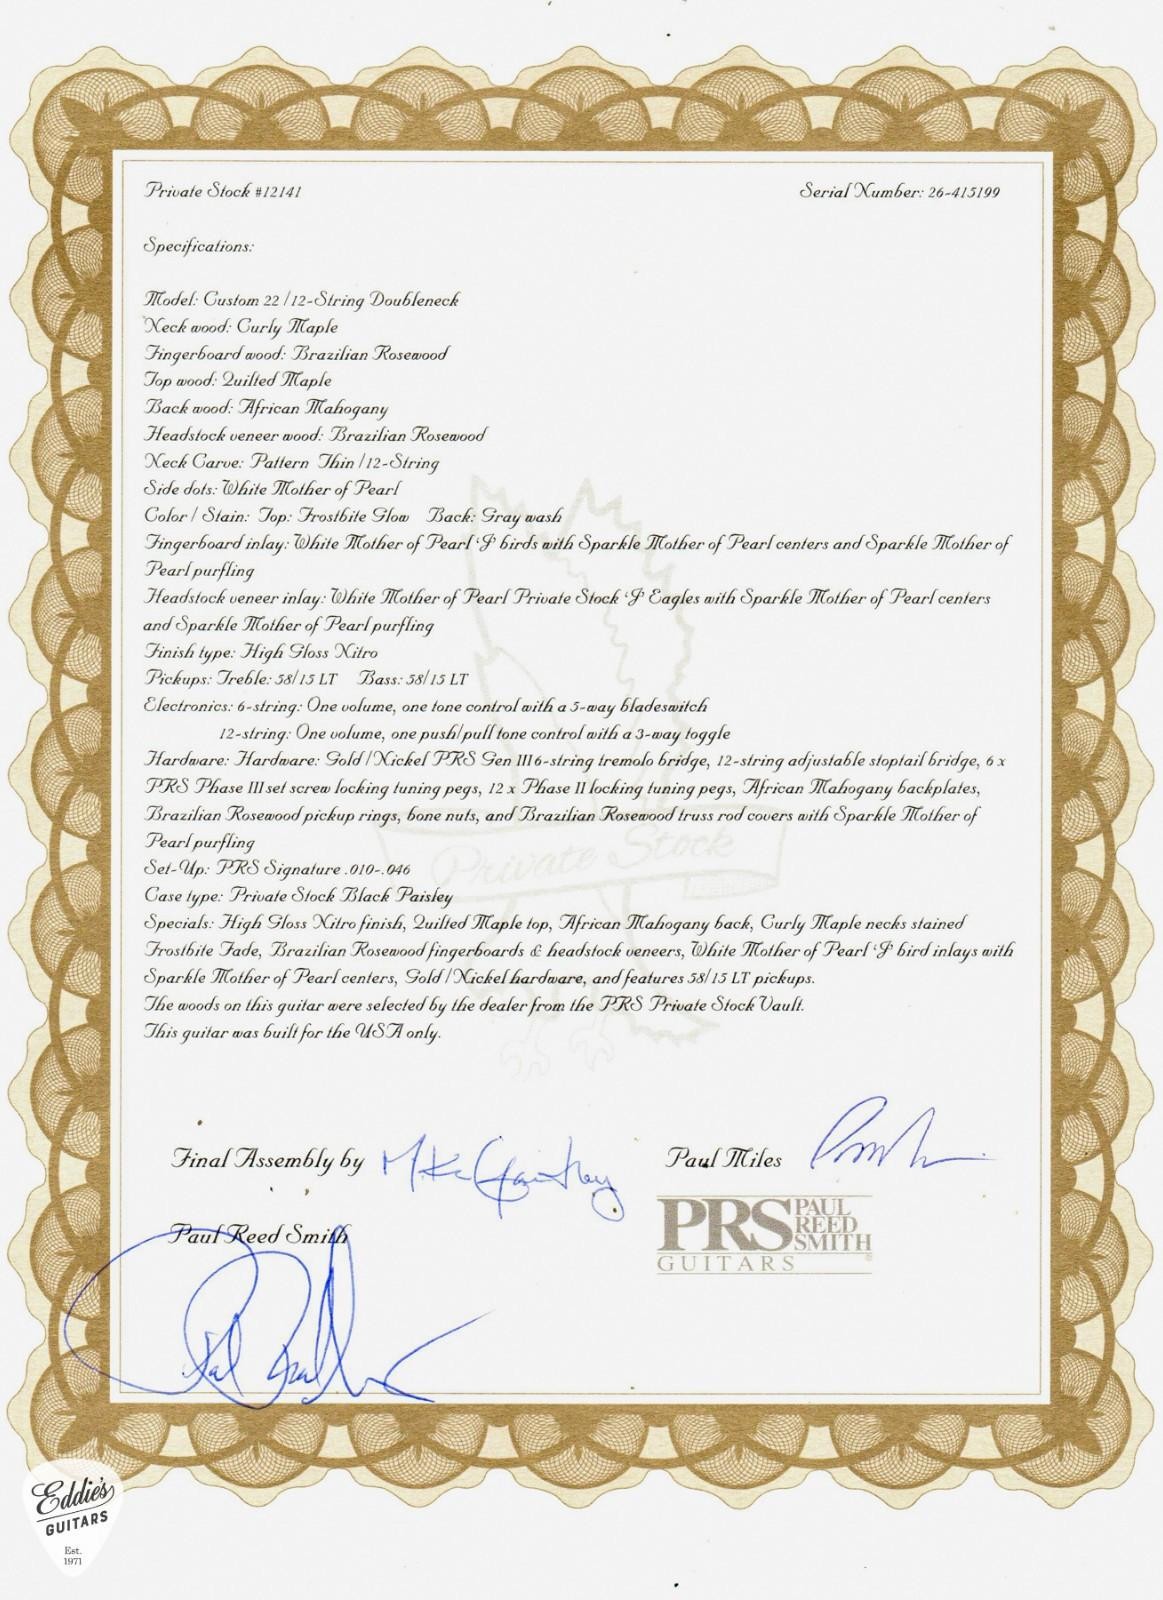 Private Stock #12141
Serial Number: 26-415199
Specifications:
Model: Custom 22 / 12-String Doubleneck
Neck wood: Curly Maple
Fingerboard wood: Brazilian Rosewood
Top wood: Quilted Maple
Back wood: African Mahogany
Headstock veneer wood: Brazilian Rosewood
Neck Carve: Pattern Thin / 12-String
Side dots: White Mother of Pearl
Color / Stain: Top: Frostbite Glow Back: Gray wash
Fingerboard inlay: White Mother of Pearl 'J' birds with Sparkle Mother of Pearl centers and Sparkle Mother of
Pearl purfling
Headstock veneer inlay: White Mother of Pearl Private Stock 'J' Eagles with Sparkle Mother of Pearl centers
and Sparkle Mother of Pearl purfling
Finish type: High Gloss Nitro
Pickups: Treble: 58/15 LT Bass: 58/15 LT
Electronics: 6-string: One volume, one tone control with a 5-way bladeswitch
12-string: One volume, one push/pull tone control with a 3-way toggle
Hardware: Hardware: Gold / Nickel PRS Gen III 6-string tremolo bridge, 12-string adjustable stoptail bridge, 6 x
PRS Phase III set screw locking tuning pegs, 12 x Phase II locking tuning pegs, African Mahogany backplates,
Brazilian Rosewood pickup rings, bone nuts, and Brazilian Rosewood truss rod covers with Sparkle Mother of
Pearl purfling
Private Stock
Set-Up: PRS Signature .010-.046
Case type: Private Stock Black Paisley
Specials: High Gloss Nitro finish, Quilted Maple top, African Mahogany back, Curly Maple necks stained
Frostbite Fade, Brazilian Rosewood fingerboards & headstock veneers, White Mother of Pearl 'J' bird inlays with
Sparkle Mother of Pearl centers, Gold / Nickel hardware, and features 58/15 LT pickups.
The woods on this guitar were selected by the dealer from the PRS Private Stock Vault.
This guitar was built for the USA only.
Final Assembly by
Paul Miles
Paul Reed Smith
PRS PAUL REED SMITH
GUITARS
Eddie's
GUITARS
Est.
1971